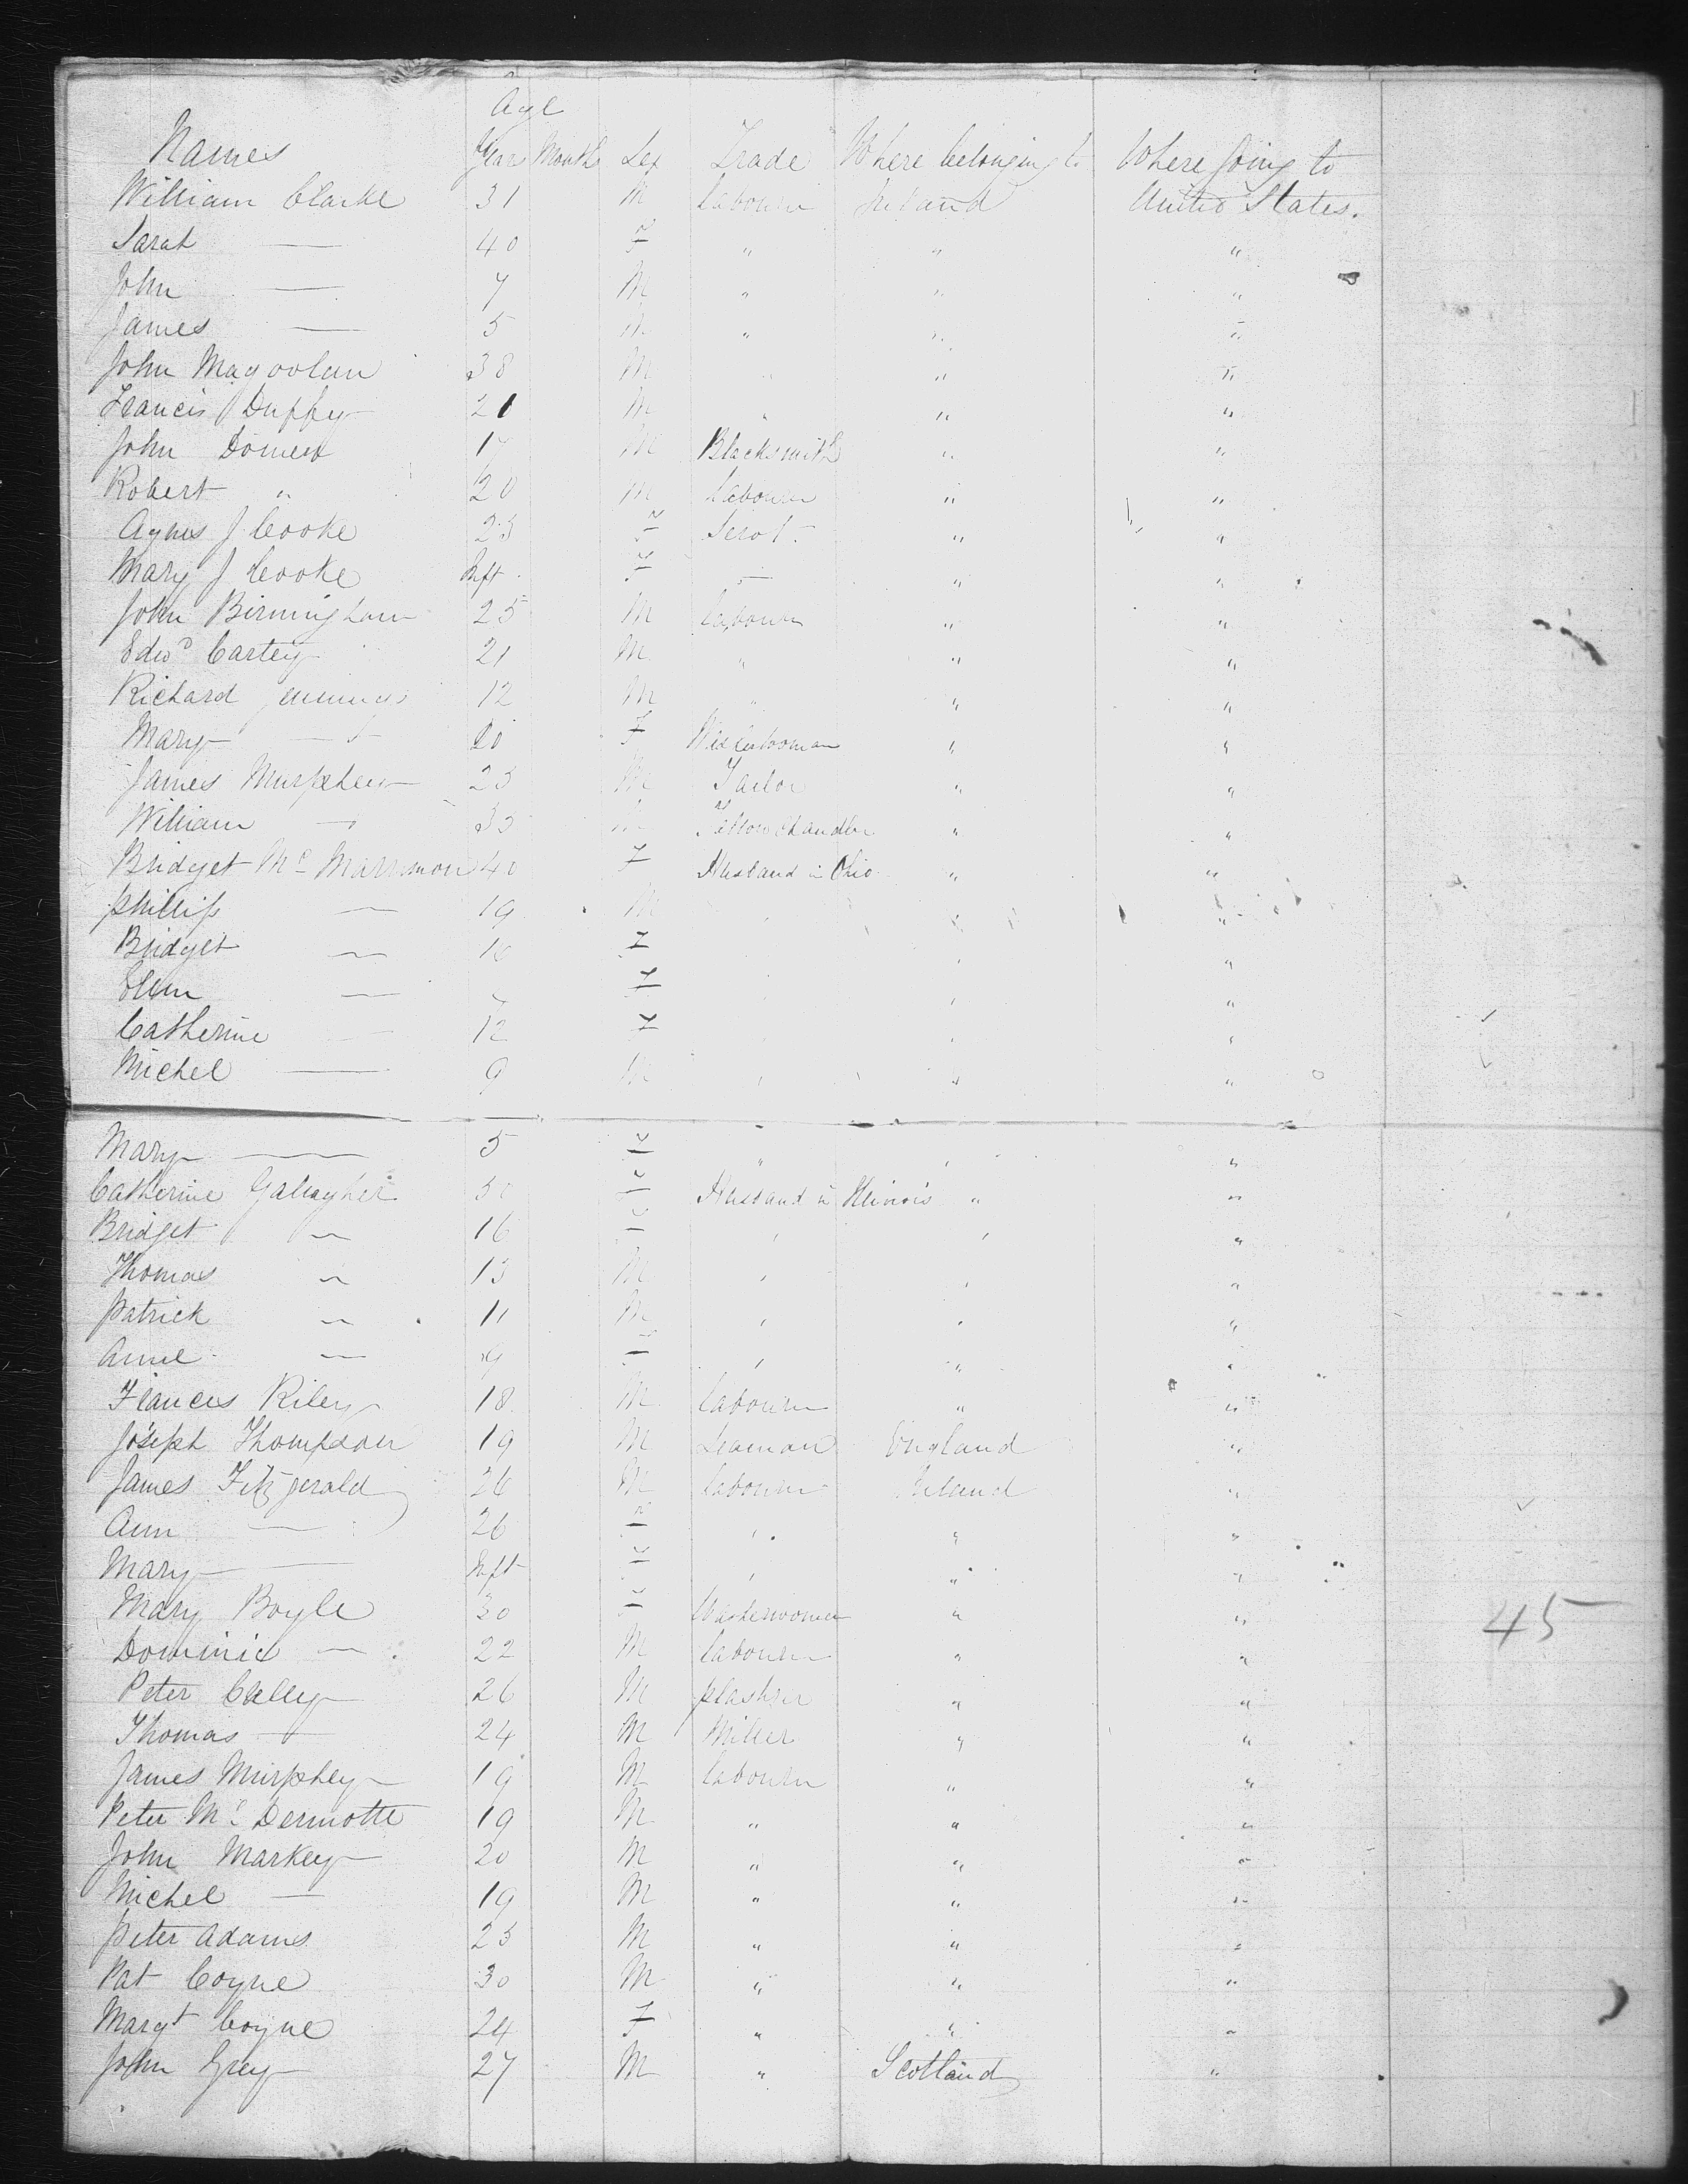 Age
Names Years Month Sex Trade Where belonging to Where going to
William Clarke 31 M labourer Ireland United States.
Sarah — 40 F " " "
John — 7 M " " "
James — 5 M " " "
John Magoolan 38 M " "
Francis Duffy 21 M " " "
John 17 M Blacksmith " "
Robert " 20 M labourer " "
Agnes J. Cooke 25 F Servt. " "
Mary J Cooke Inft. F — " "
John Birmingham 25 M labourer " "
Edwd Cartey 21 M " " "
Richard Jennings 12 M " " "
Mary — F " "
James Murphey 23 M Tailor " "
William — M Tallow Chandler " "
Bridget Mc 40 F Husband in Ohio " "
Phillip — 19 M " " "
Bridget — 16 F " " "
Ellen — F " " "
Catherine — 12 F " " "
Michel — 9 M " " "
Mary — 5 F " " "
Catherine Gallagher F Husband in Illinois " "
Bridget — 16 F " " "
Thomas — 13 M " " "
Patrick — 11 M " " "
Anne — 9 F " " "
Frances Riley 18 M labourer " "
Joseph Thompson 19 M Seaman England "
James Fitzgerald 26 M labourer Ireland "
Ann — 26 F " " "
Mary — Inft F " " "
Mary Boyle 30 F Washerwoman " "
Dominic — 22 M labourer " "
Peter 26 M plasterer " "
Thomas — 24 M Miller " "
James Murphey 19 M labourer " "
Peter Mc Dermotte 19 M " " "
John Markey 20 M " " "
Michel — 19 M " " "
Peter Adams 23 M " " "
Pat Coyne 30 M " " "
Margt Coyne 24 F " " "
John Grey 27 M " Scotland "
45